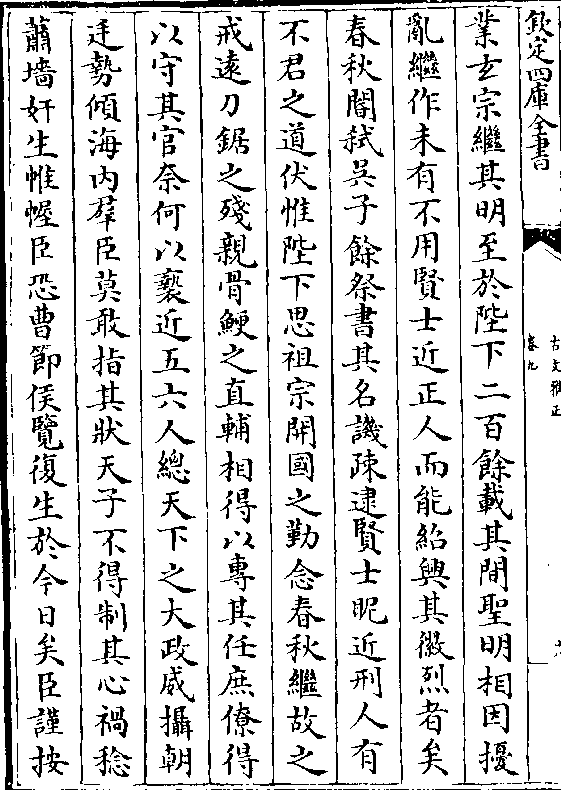 欽定四庫全書
古文雅正
卷九
業玄宗繼其明至於陛下二百餘載其間聖明相因擾
亂繼作未有不用賢士近正人而能紹興其徽烈者矣
春秋閽弑吳子餘祭書其名譏疎逮賢士昵近刑人有
不君之道伏惟陛下思祖宗開國之勤念春秋繼故之
戒遠刀鋸之殘親骨鯁之直輔相得以專其任庶僚得
以守其官奈何以褻近五六人總天下之大政威攝朝
廷勢傾海内羣臣莫敢指其狀天子不得制其心禍稔
蕭墻奸生帷幄臣恐曹節侯覽復生於今日矣臣謹按